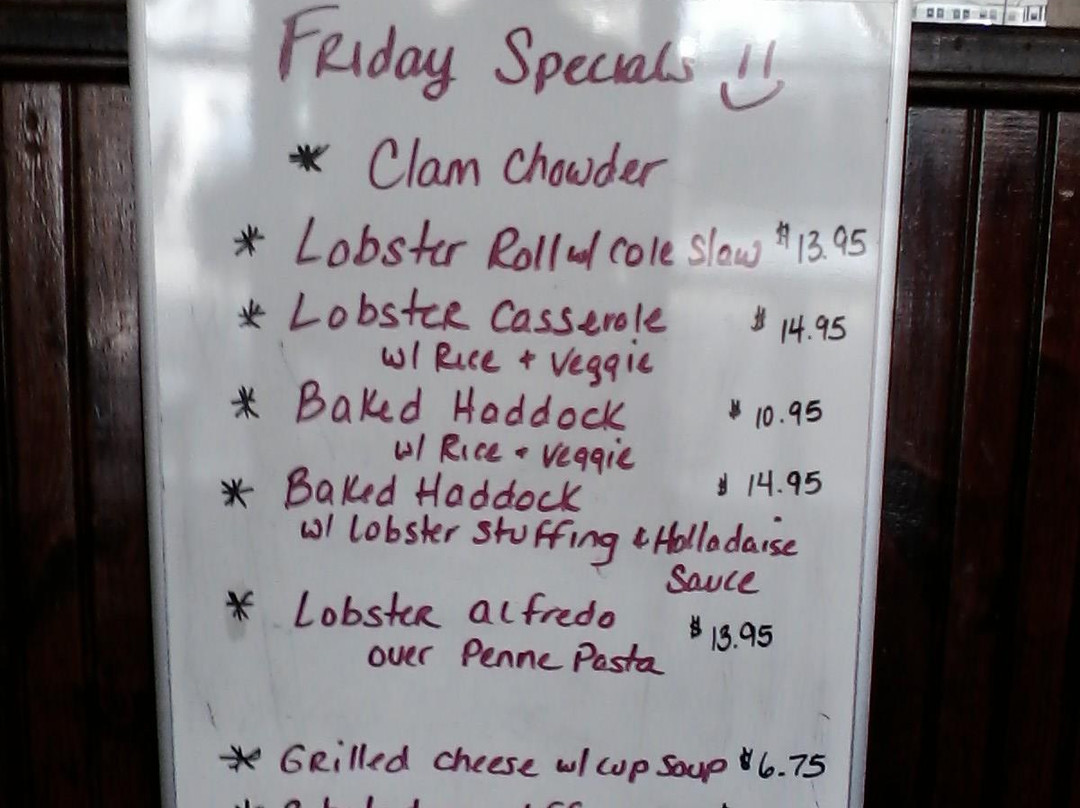 Friday Specials
* Clam Chowder
* Lobster Roll w/ Cole Slaw $13.95
* Lobster Casserole $14.95
w/ Rice + Veggie
* Baked Haddock $10.95
w/ Rice + Veggie
* Baked Haddock $14.95
w/ Lobster Stuffing & Holladaise
Sauce
* Lobster alfredo $13.95
over Penne Pasta
* Grilled cheese w/ cup soup $6.75